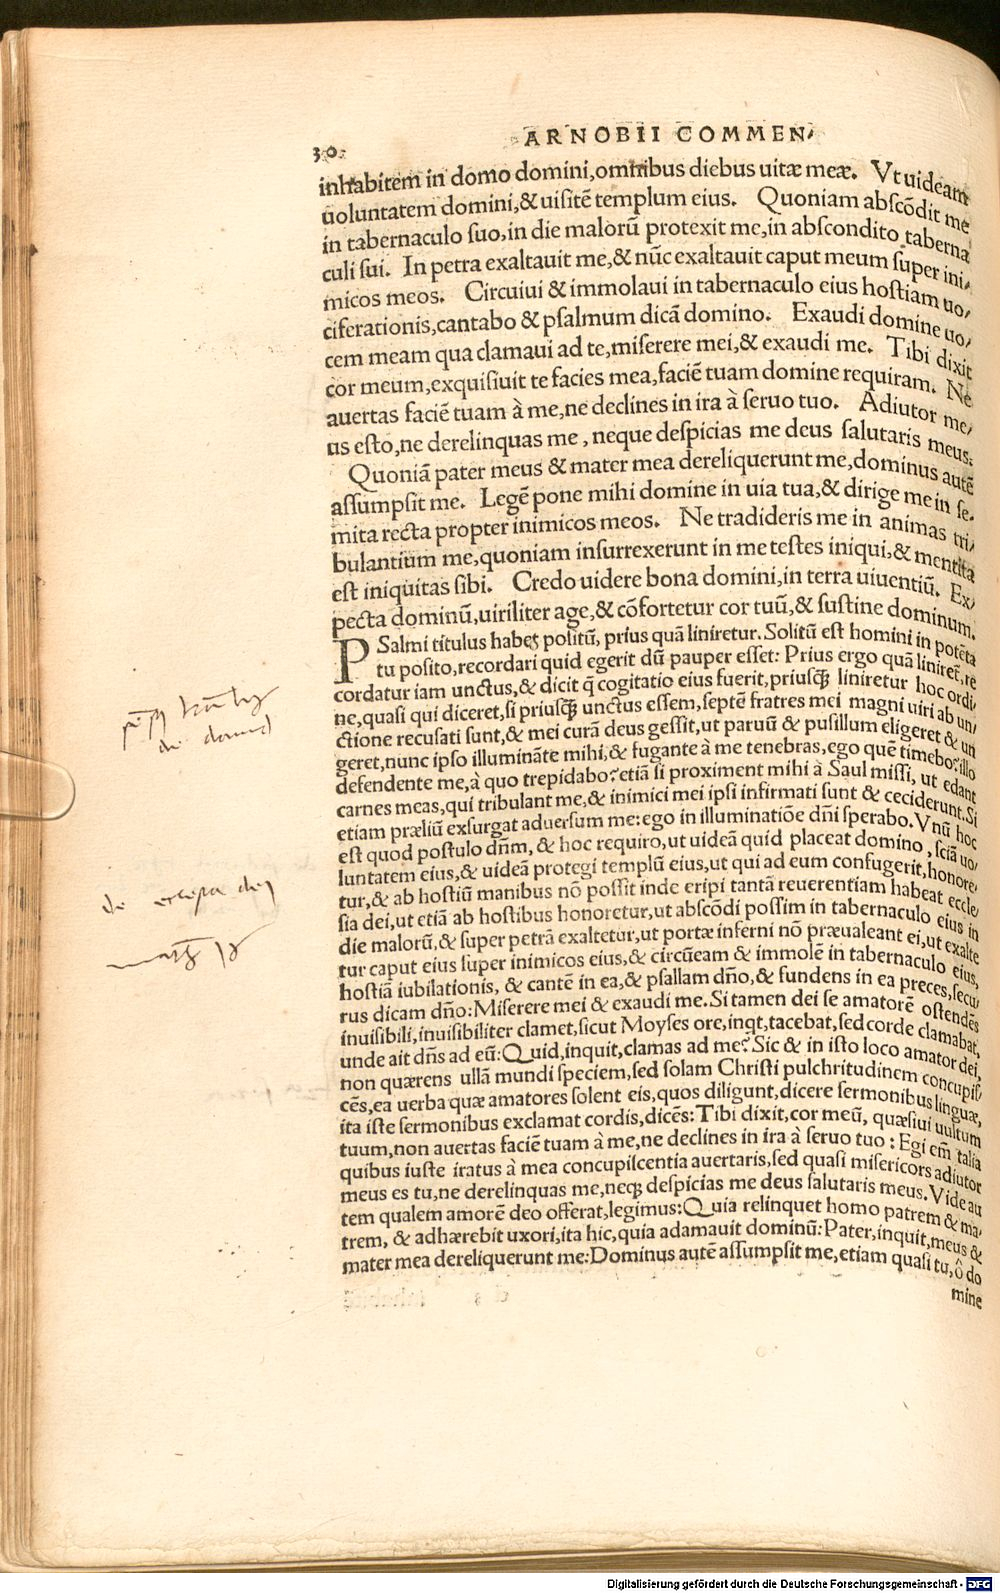 30.
ARNOBII COMMEN⸗
inhabitem in domo domini,omnibus diebus uitæ meæ. Vt uideam
uoluntatem domini,& uisitē templum eius. Quoniam abscōdit me
in tabernaculo suo,in die malorū protexit me,in abscondito taberna
culi sui. In petra exaltauit me,& nūc exaltauit caput meum super ini⸗
micos meos. Circuiui & immolaui in tabernaculo eius hostiam uo⸗
ciferationis,cantabo & psalmum dicā domino. Exaudi domine uo⸗
cem meam qua clamaui ad te,miserere mei,& exaudi me. Tibi dixit
cor meum,exquisiuit te facies mea,faciē tuam domine requiram. Ne
auertas faciē tuam à me,ne declines in ira à seruo tuo. Adiutor me⸗
us esto,ne derelinquas me, neque despicias me deus salutaris meus.
Quoniā pater meus & mater mea dereliquerunt me,dominus autē
assumpsit me. Legē pone mihi domine in uia tua,& dirige me in se⸗
mita recta propter inimicos meos. Ne tradideris me in animas tri⸗
bulantium me,quoniam insurrexerunt in me testes iniqui,& mentita
est iniquitas sibi. Credo uidere bona domini,in terra uiuentiū. Ex⸗
pecta dominū,uiriliter age,& cōfortetur cor tuū,& sustine dominum.
PSalmi titulus habet politū, prius quā liniretur. Solitū est homini in potēta
tu posito,recordari quid egerit dū pauper esset: Prius ergo quā liniret̄, re
cordatur iam unctus,& dicit q̄ cogitatio eius fuerit,priusꝗ̄ liniretur hoc ordi⸗
ne,quasi qui diceret,si priusꝗ̄ unctus essem,septē fratres mei magni uiri ab un⸗
ctione recusati sunt,& mei curā deus gessit,ut paruū & pusillum eligeret & un
geret,nunc ipso illumināte mihi,& fugante à me tenebras,ego quē timebo? illo
defendente me,à quo trepidabo? etiā si proximent mihi à Saul missi, ut edant
carnes meas,qui tribulant me,& inimici mei ipsi infirmati sunt & ceciderunt. Si
etiam præliū exsurgat aduersum me: ego in illuminatiōe dn̄i sperabo. Vnū hoc
est quod postulo dn̄m, & hoc requiro,ut uideā quid placeat domino, sciā uo⸗
luntatem eius,& uideā protegi templū eius,ut qui ad eum confugerit,honore⸗
tur,& ab hostiū manibus nō possit inde eripi tantā reuerentiam habeat eccle⸗
sia dei,ut etiā ab hostibus honoretur,ut abscōdi possim in tabernaculo eius in
die malorū,& super petrā exaltetur,ut portæ inferni nō præualeant ei,ut exalte
tur caput eius super inimicos eius,& circūeam & immolē in tabernaculo eius,
hostiā iubilationis, & cantē in ea,& psallam dn̄o,& fundens in ea preces,secu⸗
rus dicam dn̄o: Miserere mei & exaudi me. Si tamen dei se amatorē ostendēs
inuisibili,inuisibiliter clamet,sicut Moyses ore,inqt,tacebat,sed corde clamabat,
unde ait dn̄s ad eū: Quid,inquit,clamas ad me? Sic & in isto loco amator dei,
non quærens ullā mundi speciem,sed solam Christi pulchritudinem concupis⸗
cēs,ea uerba quæ amatores solent eis,quos diligunt,dicere sermonibus linguæ,
ita iste sermonibus exclamat cordis,dicēs: Tibi dixit,cor meū, quæsiui uultum
tuum,non auertas faciē tuam à me,ne declines in ira à seruo tuo: Egi em̄ talia
quibus iuste iratus à mea concupiscentia auertaris,sed quasi misericors adiutor
meus es tu,ne derelinquas me,neqꝫ despicias me deus salutaris meus. Vide au
tem qualem amorē deo offerat,legimus: Quia relinquet homo patrem & ma⸗
trem, & adhærebit uxori,ita hic,quia adamauit dominū: Pater,inquit,meus &
mater mea dereliquerunt me: Dominus autē assumpsit me,etiam quasi tu,ô do
mine
de
Digitalisierung gefördert durch die Deutsche Forschungsgemeinschaft - DFG